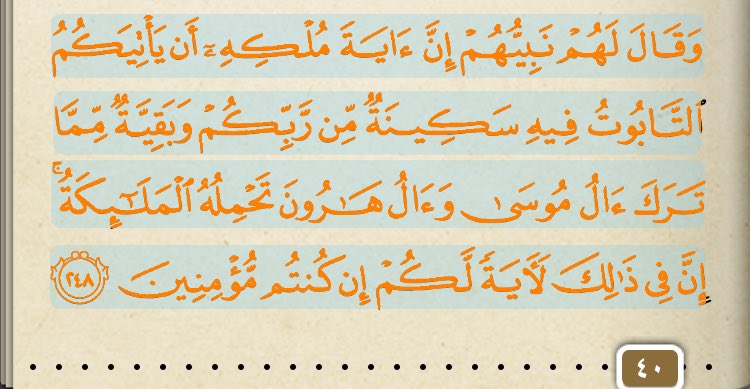 وَقَالَ لَهُمْ نَبِيُّهُمْ إِنَّ ءَايَةَ مُلْكِهِۦٓ أَن يَأْتِيَكُمُ
ٱلتَّابُوتُ فِيهِ سَكِينَةٌ مِّن رَّبِّكُمْ وَبَقِيَّةٌ مِّمَّا
تَرَكَ ءَالُ مُوسَىٰ وَءَالُ هَـٰرُونَ تَحْمِلُهُ ٱلْمَلَـٰٓئِكَةُ ۚ
إِنَّ فِى ذَٰلِكَ لَـَٔايَةً لَّكُمْ إِن كُنتُم مُّؤْمِنِينَ ٢٤٨
٤٠